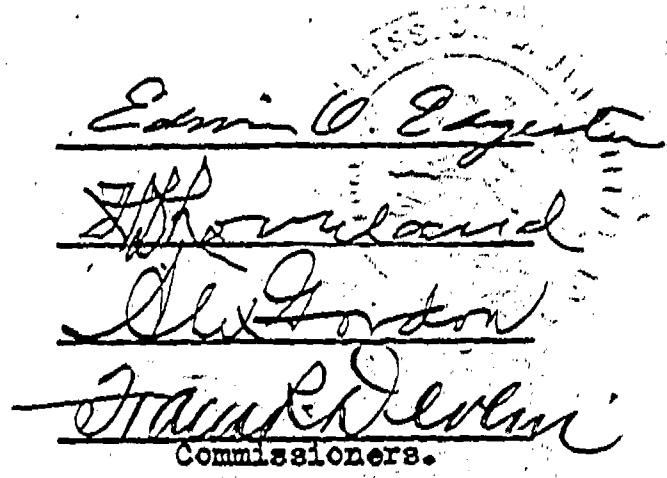 Edwin O. Edgerton
H. D. Loveland
Alex Gordon
Frank R. Devlin
Commissioners.